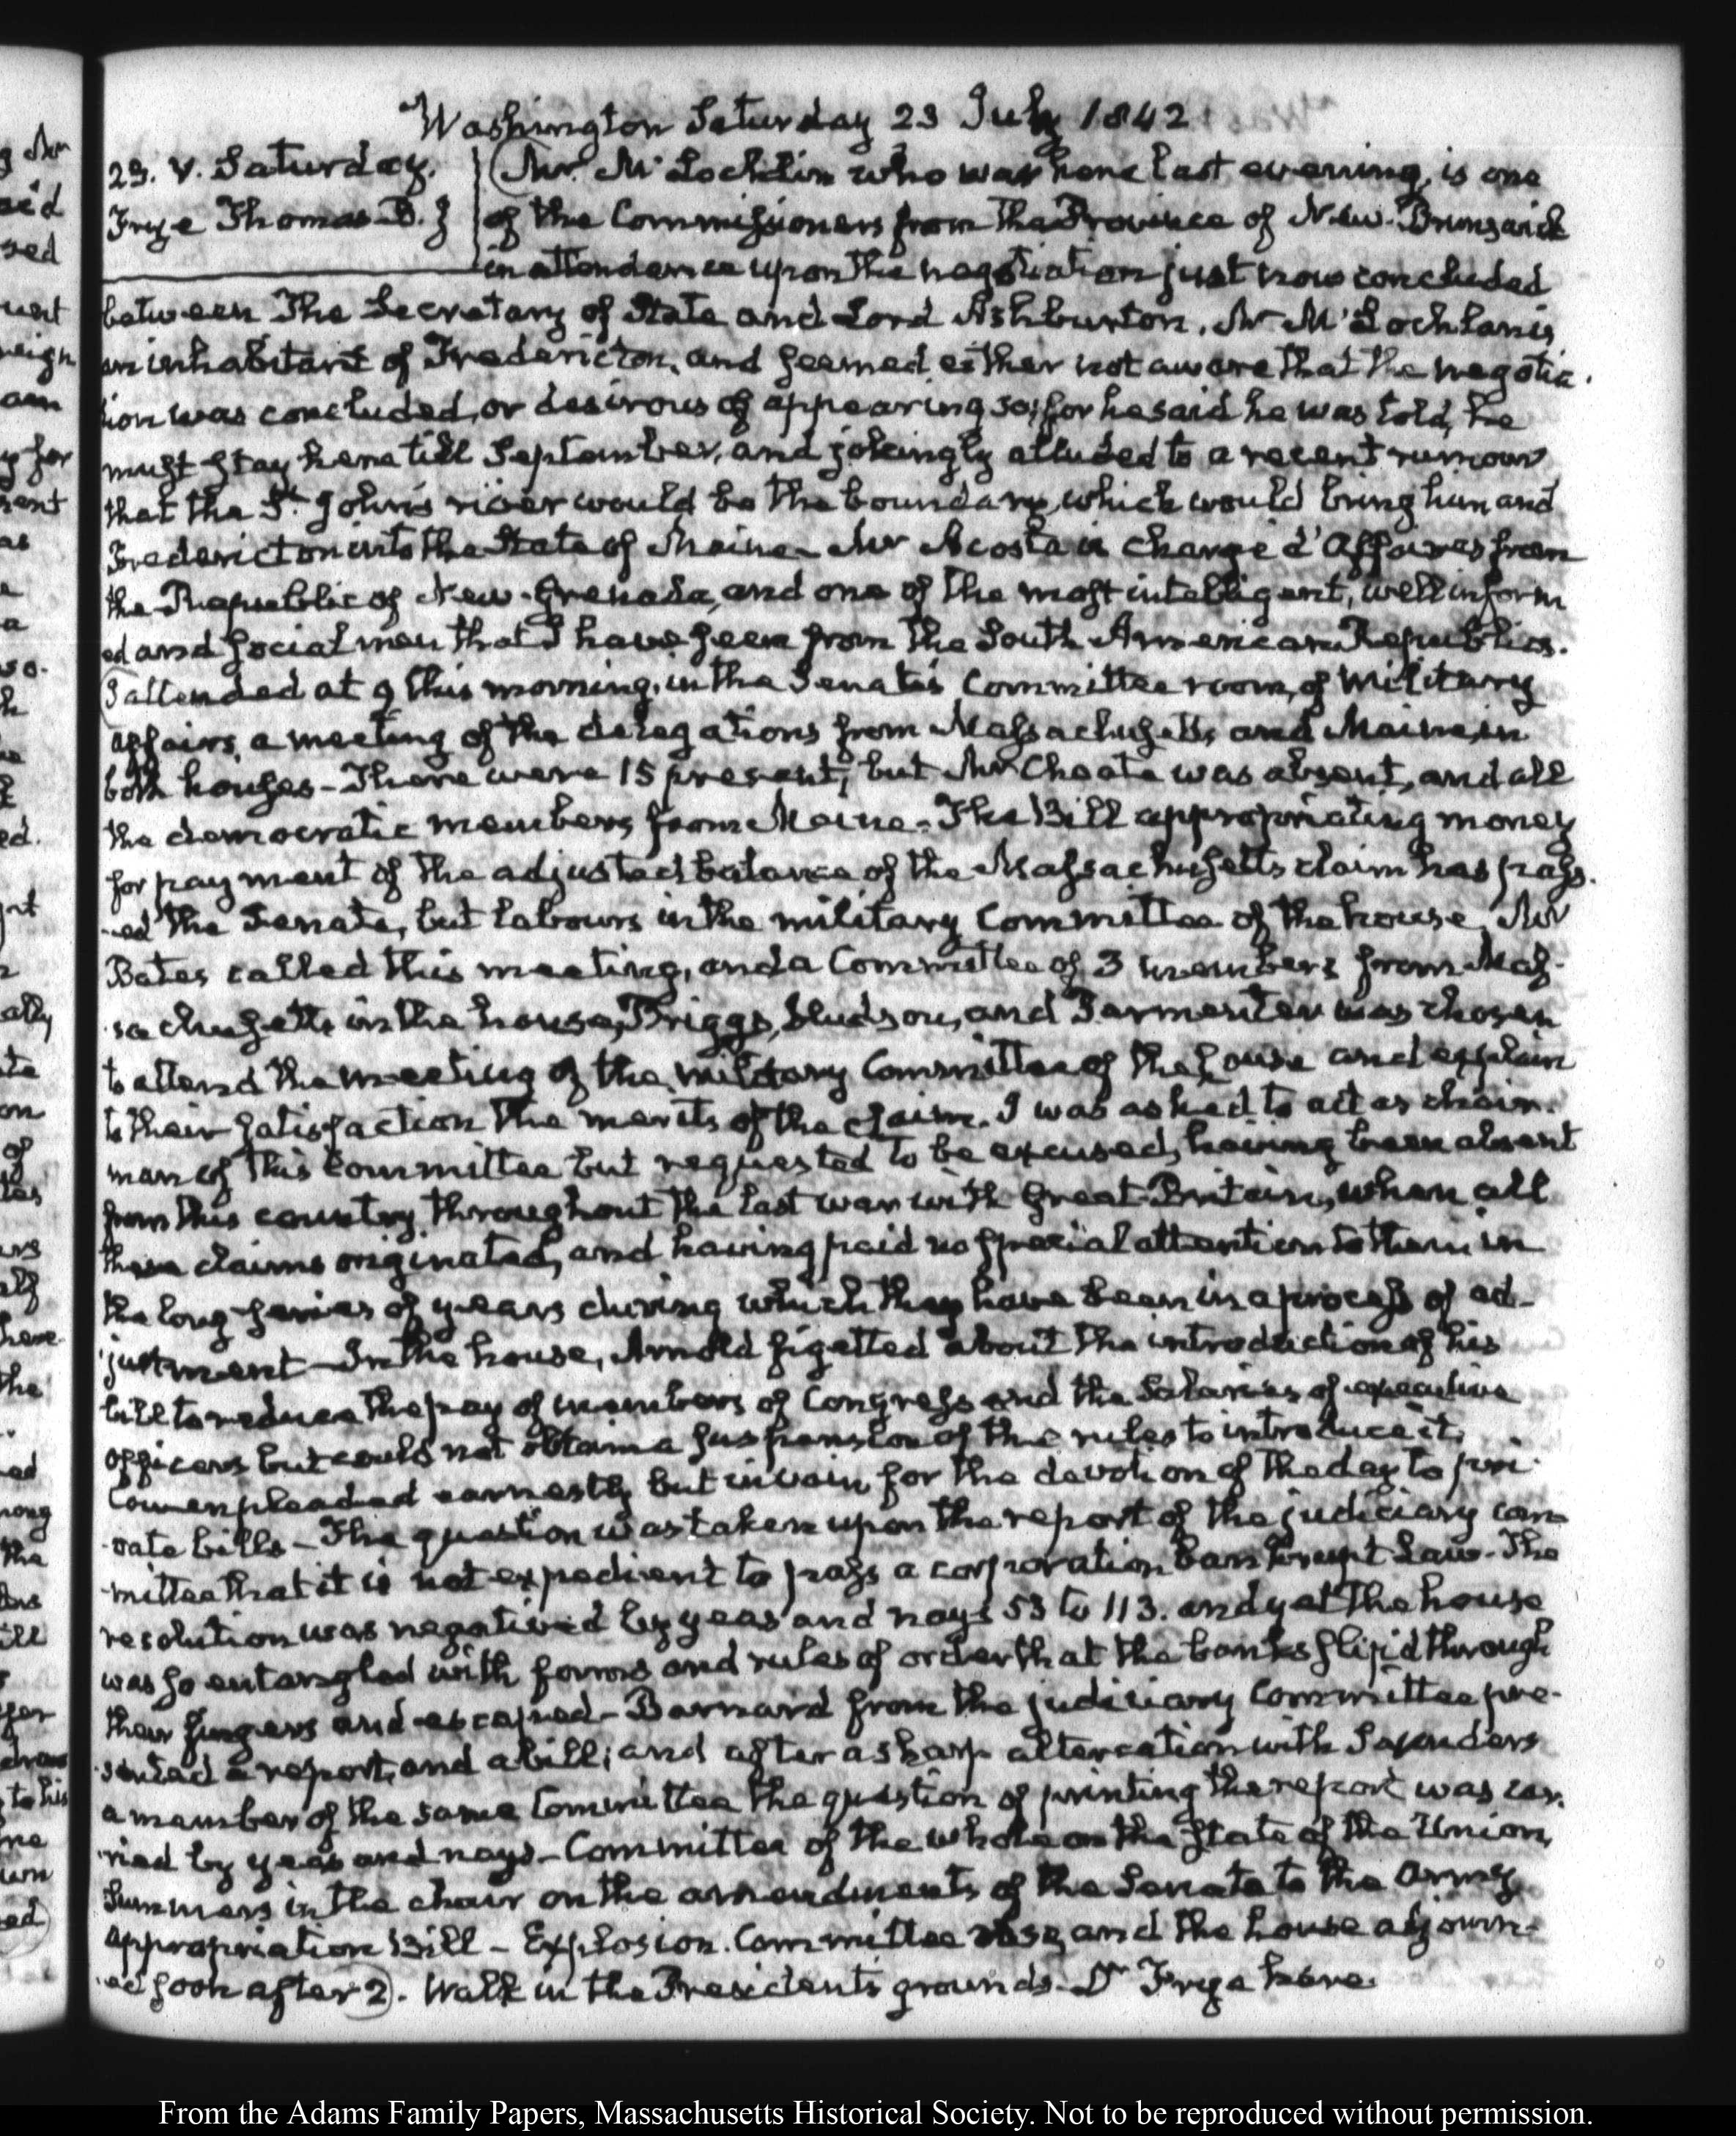 Washington Saturday 23 July 1842
23. V. Saturday.
Frye Thomas B.
Mr. McLochlin who was here last evening, is one
of the Commissioners from the Province of New-Brunswick
in attendance upon the negotiation just now concluded
between the Secretary of State and Lord Ashburton. Mr McLochlan is
an inhabitant of Fredericton, and seemed either not aware that the negotia-
tion was concluded, or desirous of appearing so; for he said he was told, he
must stay here till September, and jokingly alluded to a recent rumour
that the St. John's river would be the boundary, which would bring him and
Fredericton into the State of Maine — Mr Acosta is chargé d'Affaires from
the Republic of New-Grenada, and one of the most intelligent, well inform
ed and social men that I have seen from the South American Republics.
I attended at 9 this morning, in the Senate's Committee room, of Military
affairs a meeting of the delegations from Massachusetts, and Maine, in
both houses — There were 15 present; but Mr Choate was absent, and all
the democratic members from Maine. The Bill appropriating money
for payment of the adjusted balance of the Massachusetts claim has pass-
ed the Senate, but labours in the military Committee of the house. Mr
Bates called this meeting, and a Committee of 3 members from Mas-
sachusetts in the house, Briggs, Hudson, and Parmenter was chosen
to attend the meeting of the military Committee of the house and explain
to their satisfaction the merits of the claim. I was asked to act as chair-
man of this Committee but requested to be excused, having been absent
from this country throughout the last war with Great-Britain, when all
these claims originated, and having paid no special attention to them in
the long series of years during which they have been in a process of ad-
justment — In the house, Arnold figetted about the introduction of his
bill to reduce the pay of members of Congress and the Salaries of executive
officers but could not obtain a suspension of the rules to introduce it.
Cowen pleaded earnestly but in vain for the devotion of the day to pri-
vate bills — The question was taken upon the report of the judiciary com-
mittee that it is not expedient to pass a corporation bankrupt Law. The
resolution was negatived by yeas and nays 53 to 113. and yet the house
was so entangled with forms and rules of order that the banks slip'd through
their fingers and escaped — Barnard from the judiciary Committee pre-
sented a report, and a bill; and after a sharp altercation with Saunders
a member of the same Committee the question of printing the report was car-
ried by yeas and nays — Committee of the whole on the State of the Union,
Summers in the chair on the amendments of the Senate to the Army
appropriation Bill — Explosion. Committee rose, and the house adjourn-
ed soon after 2. Walk in the President's grounds — Dr Frye here.
From the Adams Family Papers, Massachusetts Historical Society. Not to be reproduced without permission.